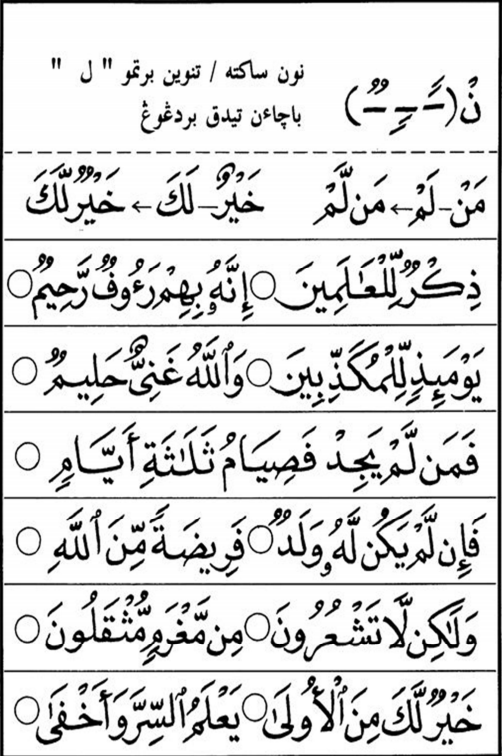 نْ (ـًـ ـٍـ ـٌـ) نون ساكنه / تنوين برتمو " ل "
باچاءن تيدق بردڠوڠ
مَنْ - لَمْ ← مَن لَّمْ خَيْرٌ - لَكَ ← خَيْرٌ لَّكَ
ذِكْرٌ لِّلْعَٰلَمِينَ ○ إِنَّهُۥ بِهِمْ رَءُوفٌ رَّحِيمٌ ○
يَوْمَئِذٍ لِّلْمُكَذِّبِينَ ○ وَٱللَّهُ غَنِىٌّ حَلِيمٌ ○
فَمَن لَّمْ يَجِدْ فَصِيَامُ ثَلَٰثَةِ أَيَّامٍ ○
فَإِن لَّمْ يَكُن لَّهُۥ وَلَدٌ ○ فَرِيضَةً مِّنَ ٱللَّهِ ○
وَلَٰكِن لَّا تَشْعُرُونَ ○ مِن مَّغْرَمٍ مُّثْقَلُونَ ○
خَيْرٌ لَّكَ مِنَ ٱلْأُولَىٰ ○ يَعْلَمُ ٱلسِّرَّ وَأَخْفَىٰ ○